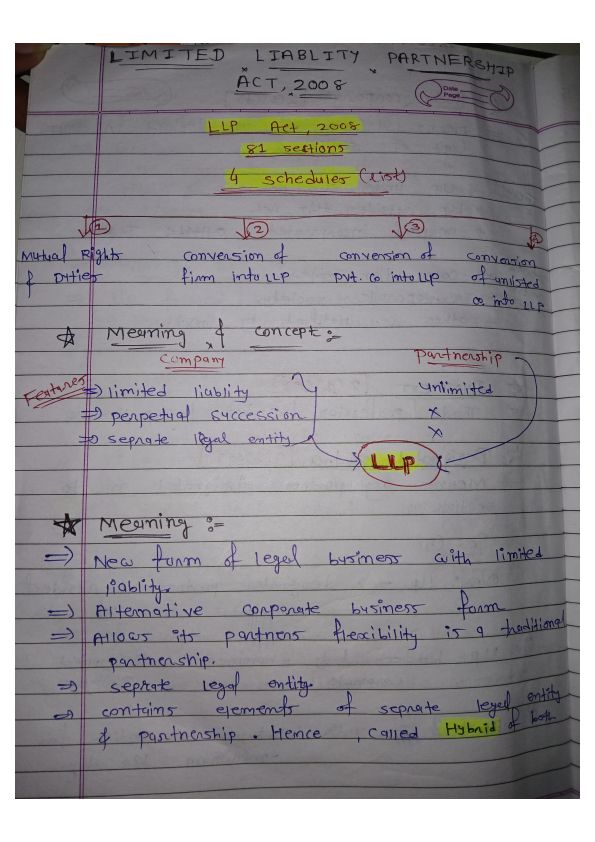 LIMITED LIABLITY PARTNERSHIP
ACT, 2008
Date
Page
LLP Act, 2008
81 sections
4 schedules (list)
1 2 3 4
Mutual Rights conversion of conversion of conversion
& Dties firm into LLP Pvt. Co into LLP of unlisted
co. into LLP
Meaning & concept :-
Company Partnership
Features
⇒ limited liablity unlimited
⇒ perpetual succession x
⇒ seprate legal entity x
LLP
Meaning :-
⇒ New form of legal business with limited
liablity.
⇒ Alternative corporate business form
⇒ Allows its partners flexibility is a traditional
partnership.
⇒ seprate legal entity.
⇒ contains elements of seprate legal entity
& partnership. Hence, called Hybrid of both